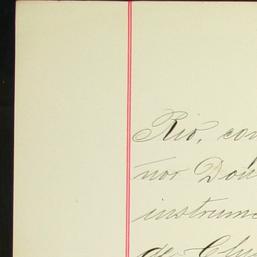 Rio, con
nor Don
instrume
de Chy